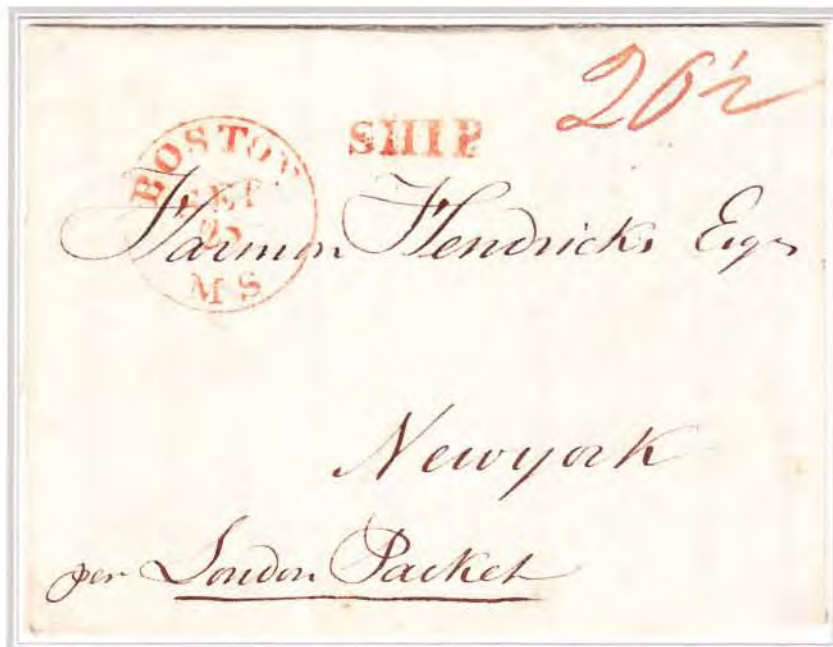 26½
SHIP
BOSTON
SEP
25
MS
Harmon Hendricks Esqr
Newyork
per London Packet